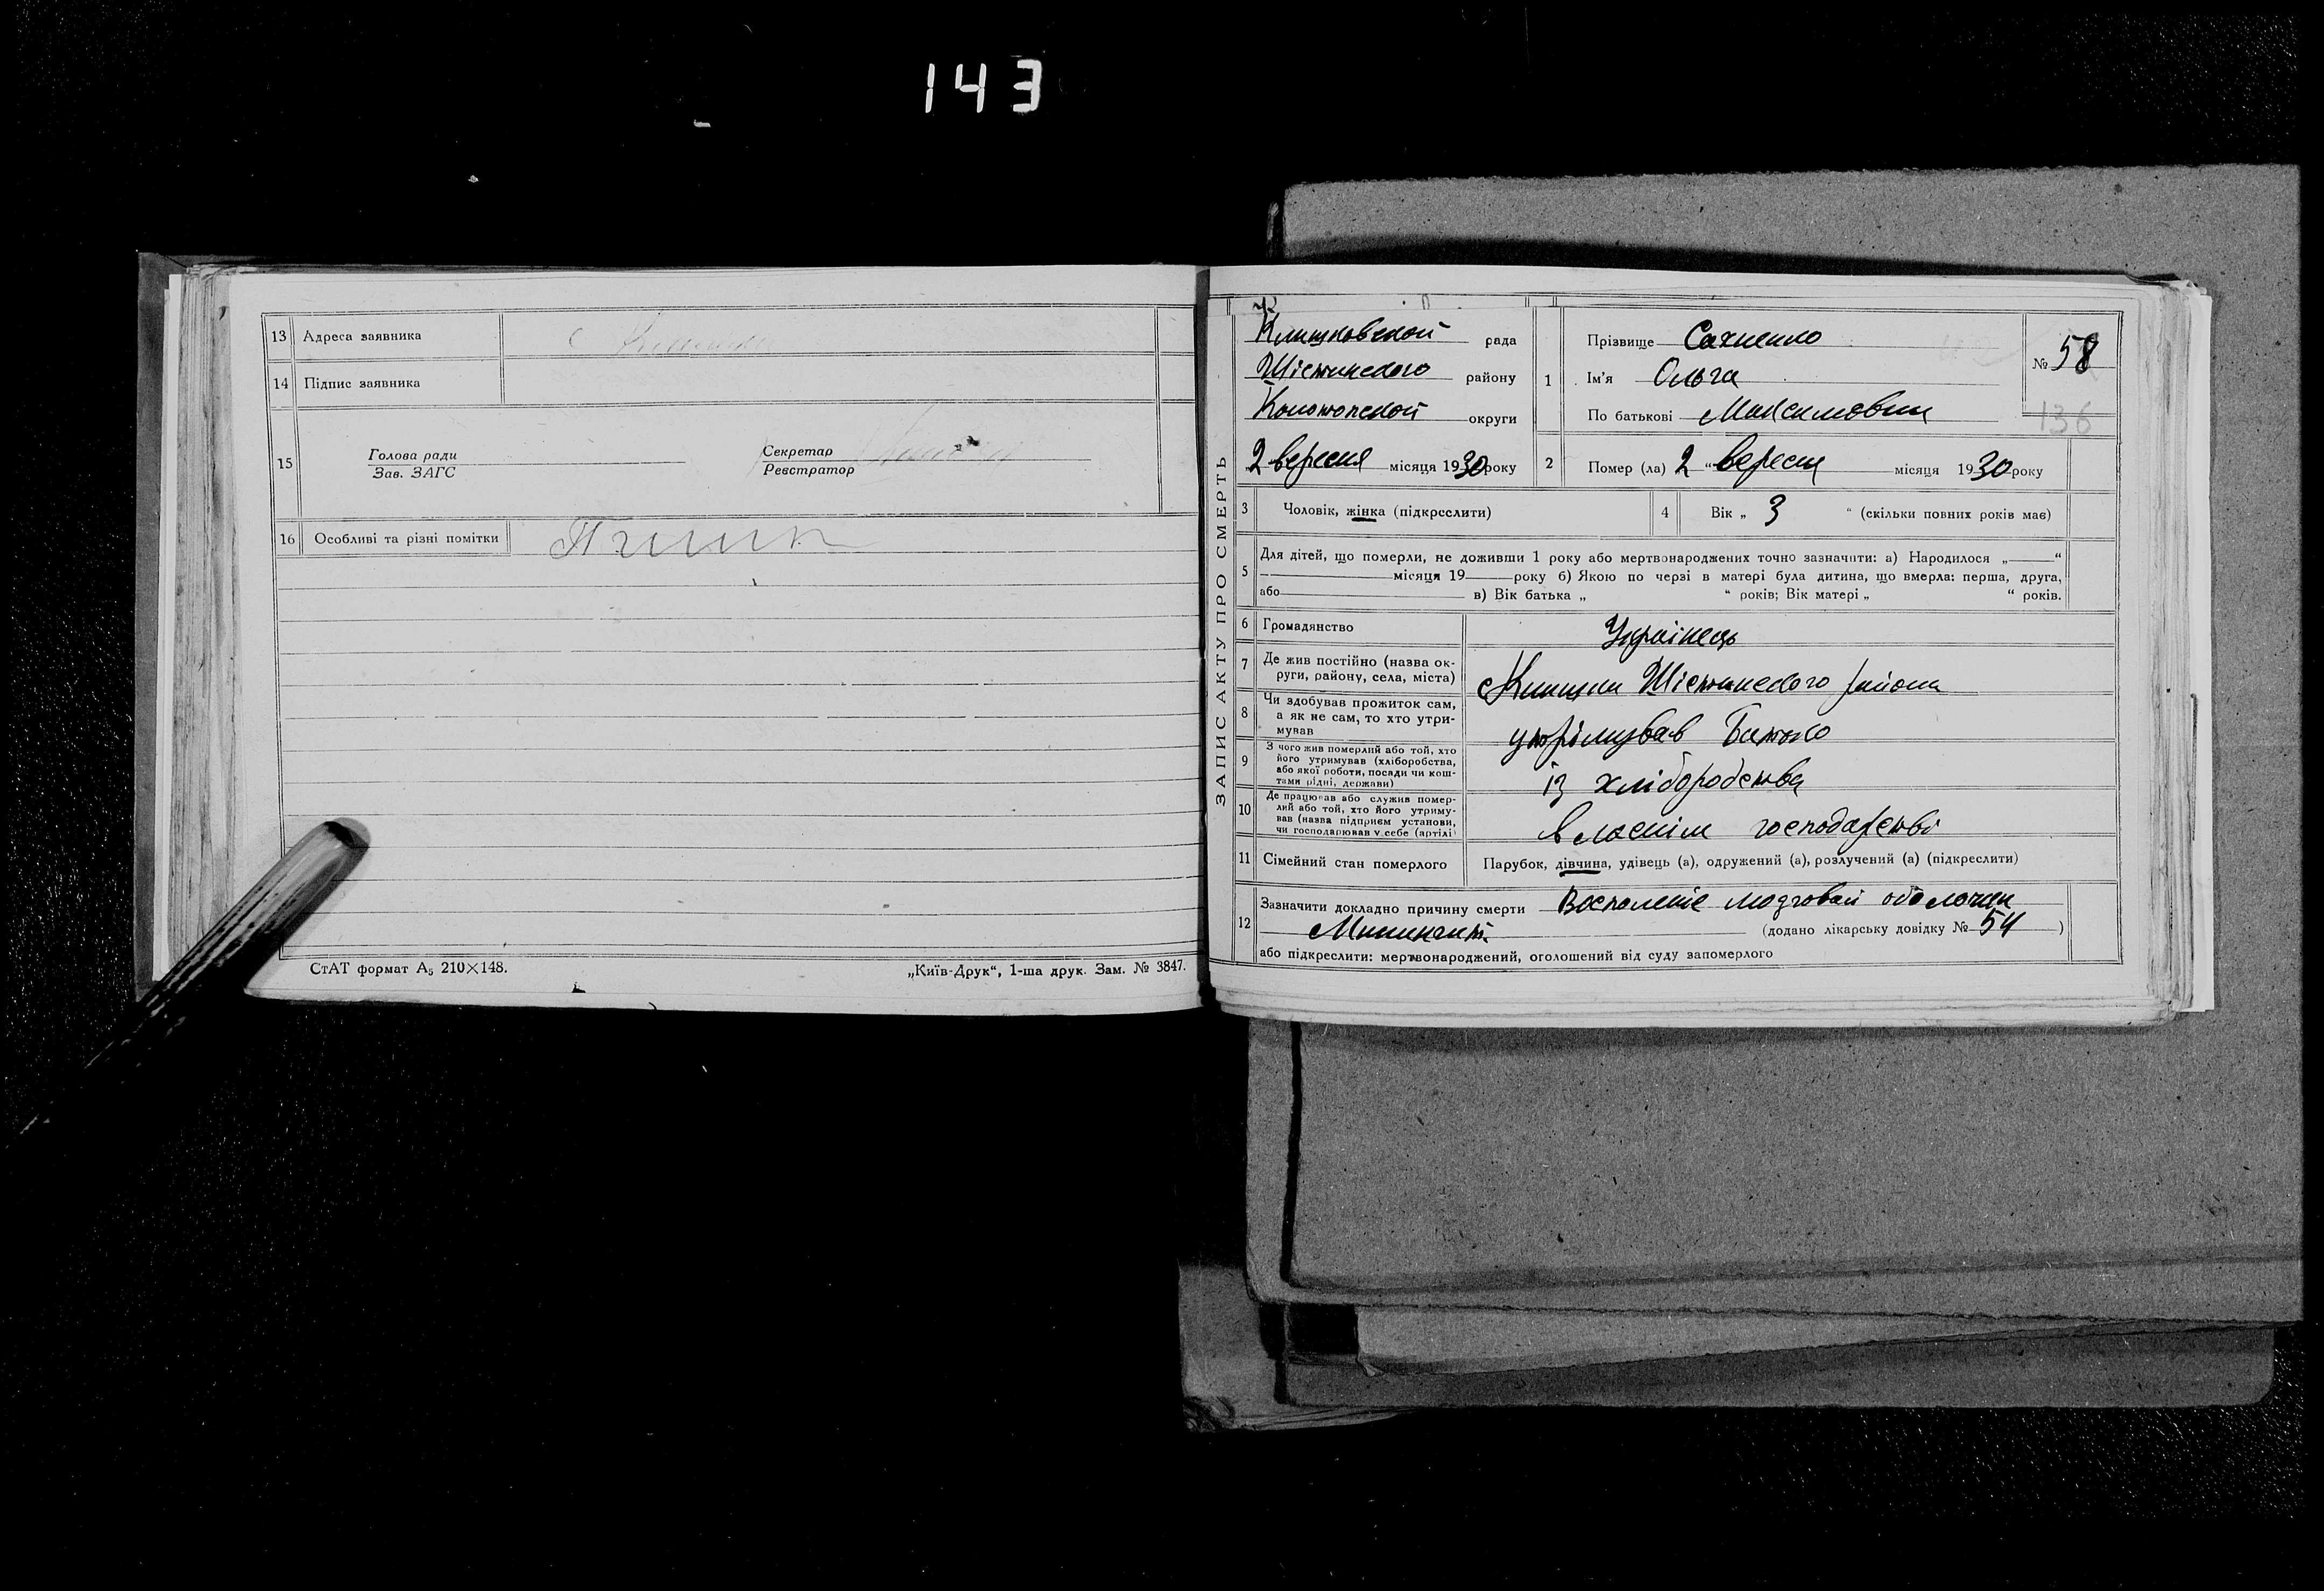 143
13 Адреса заявника
14 Підпис заявника
15 Голова ради
Зав. ЗАГС
Секретар
Реєстратор
16 Особливі та різні помітки
СтАТ формат А5 210×148.
„Київ-Друк“, 1-ша друк. Зам. № 3847.
ЗАПИС АКТУ ПРО СМЕРТЬ
Клишковской рада
Шістинского району
Конотопской округи
2 вересня місяця 1930 року
1 Прізвище Сахненко
Ім'я Ольга
По батькові Максимовни
№ 58
136
2 Помер (ла) 2 “ вересня місяця 1930 року
3 Чоловік, жінка (підкреслити)
4 Вік „ 3 “ (скільки повних років має)
5 Для дітей, що померли, не доживши 1 року або мертвонароджених точно зазначити: а) Народилося „ “
місяця 19 року б) Якою по черзі в матері була дитина, що вмерла: перша, друга,
або в) Вік батька „ “ років; Вік матері „ “ років.
6 Громадянство Українець
7 Де жив постійно (назва ок-
руги, району, села, міста)
с Клишки Шістинского района
8 Чи здобував прожиток сам,
а як не сам, то хто утри-
мував
утрімував Батько
9 З чого жив померлий або той, хто
його утримував (хліборобства,
або якої роботи, посади чи кош-
тами рідні, держави)
із хліборобства
10 Де працював або служив помер-
лий або той, хто його утриму-
вав (назва підприєм установи,
чи господарював у себе (артілі)
в ласнім господарстві
11 Сімейний стан померлого Парубок, дівчина, удівець (а), одружений (а), розлучений (а) (підкреслити)
12 Зазначити докладно причину смерти Восполеніе мозговай оболочки
Минингит. (додано лікарську довідку № 54 )
або підкреслити: мертвонароджений, оголошений від суду запомерлого